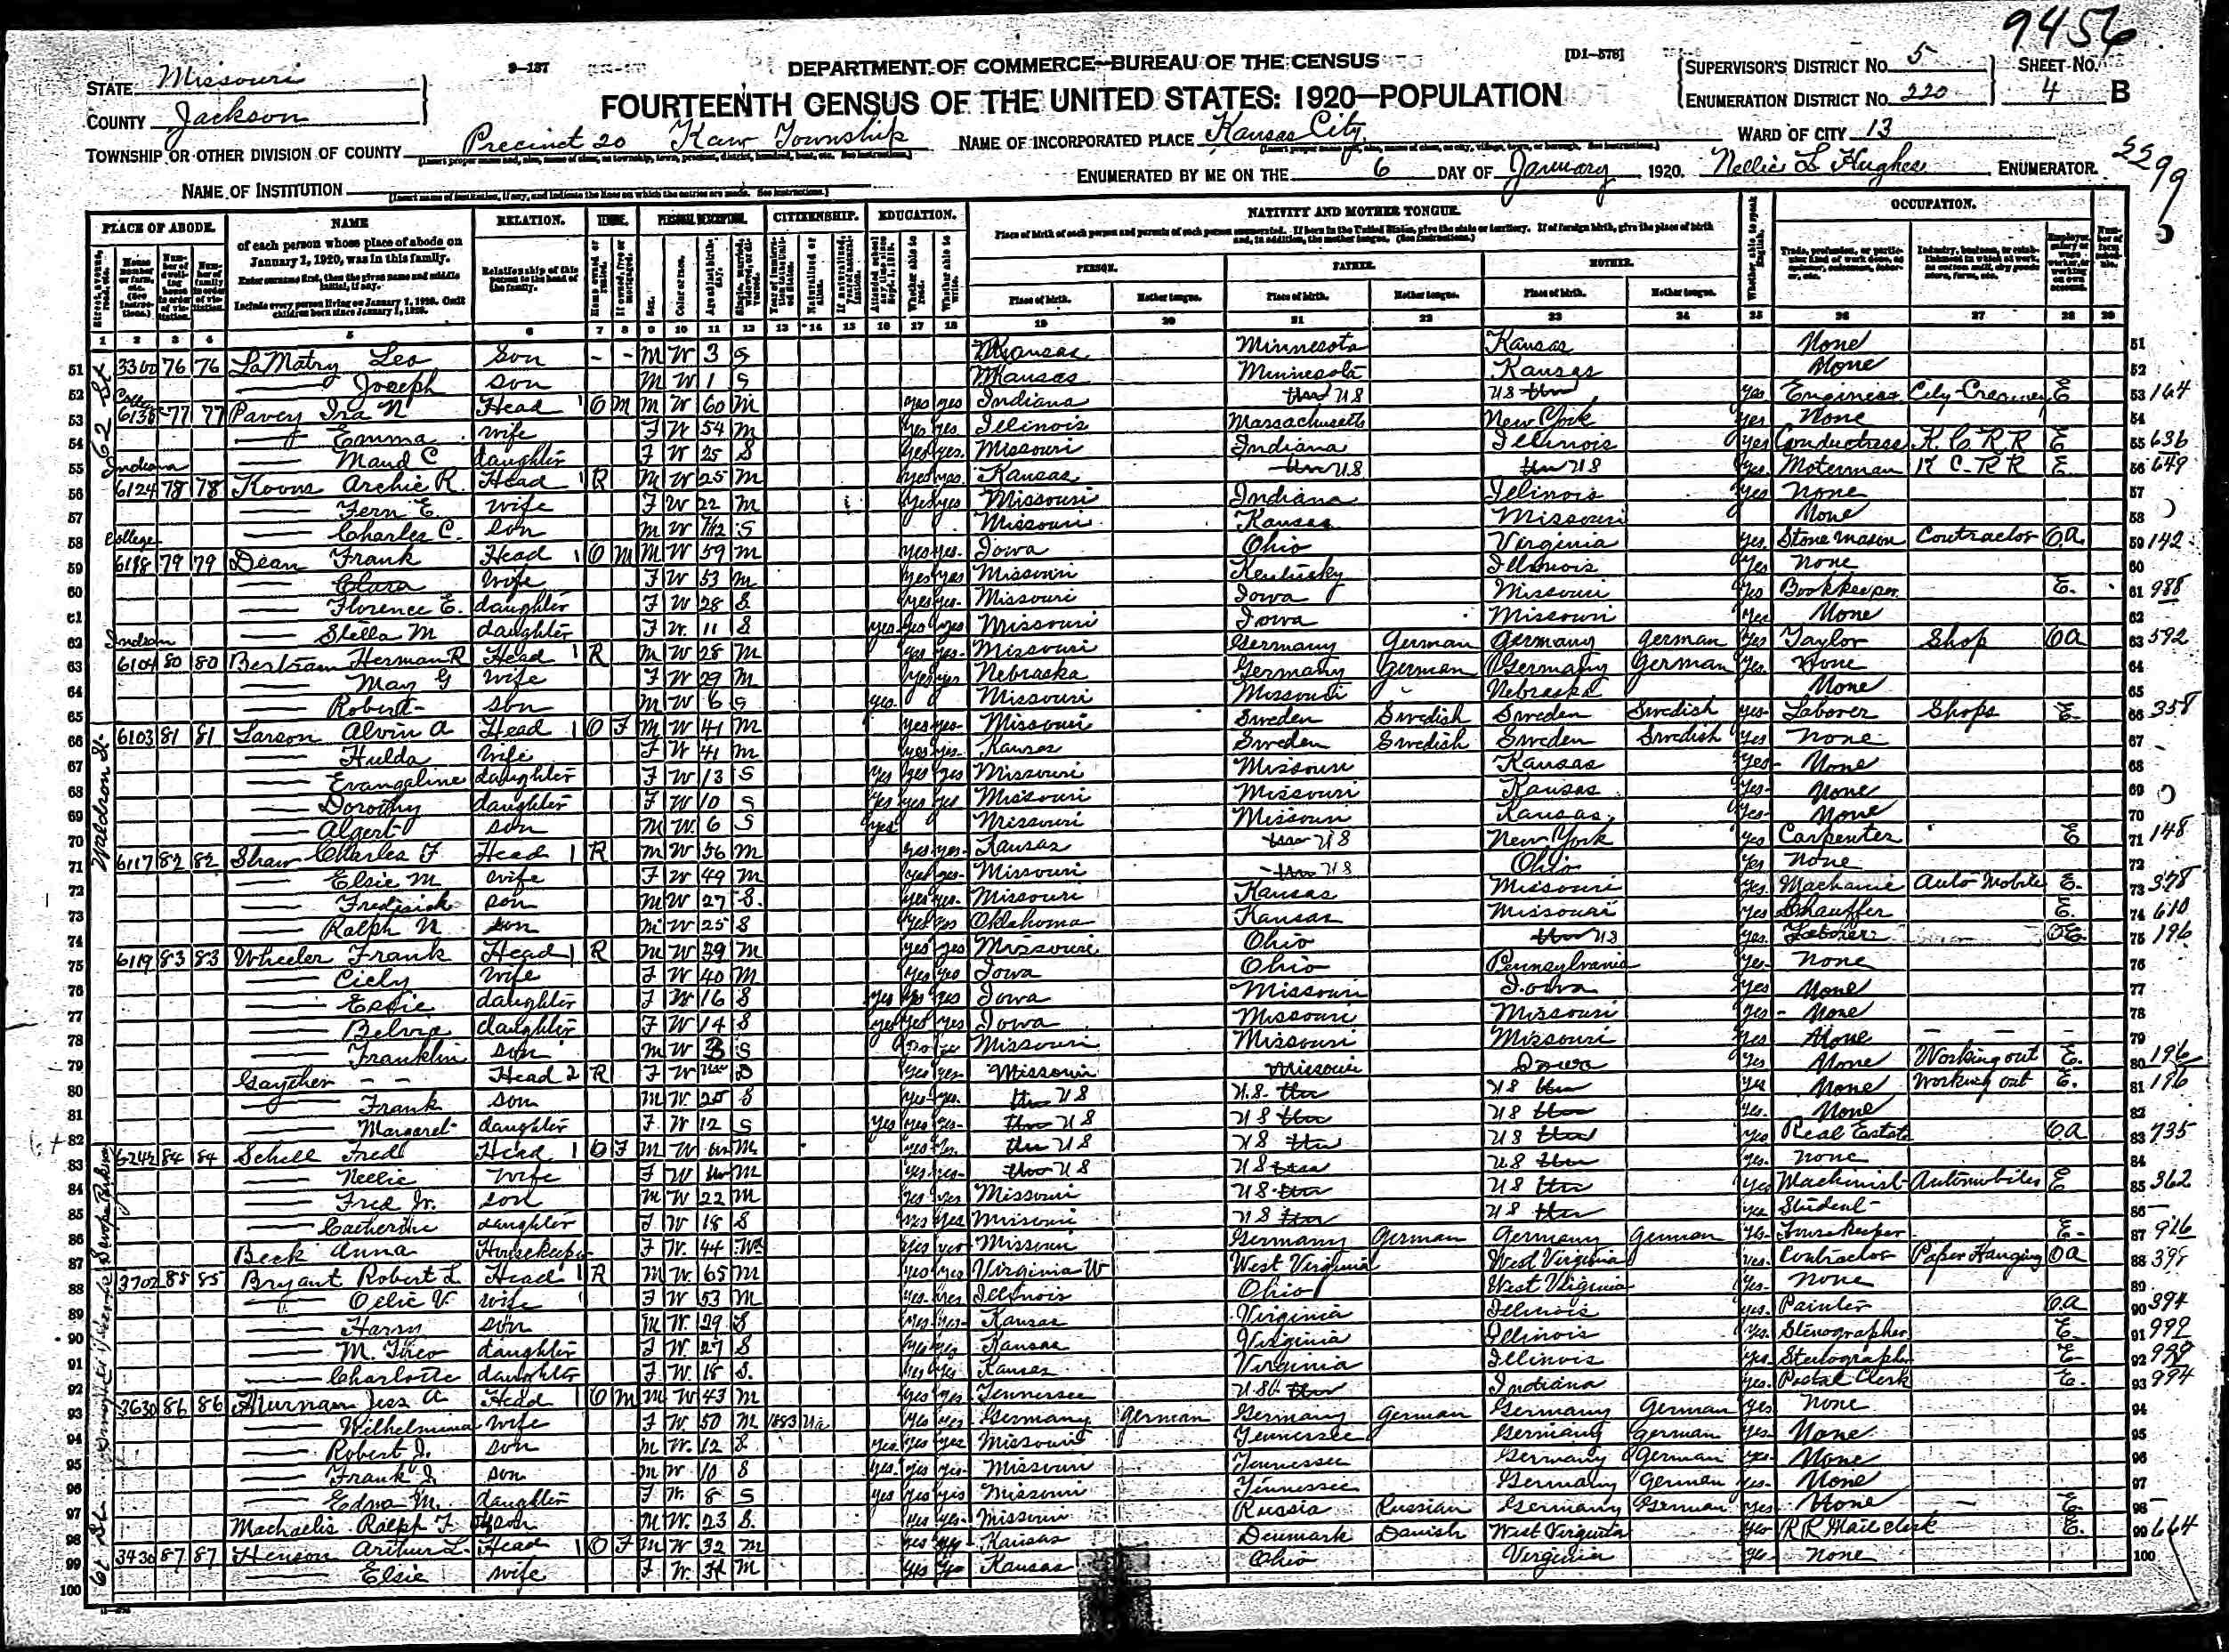 9456
STATE Missouri
9-137
DEPARTMENT OF COMMERCE—BUREAU OF THE CENSUS
[D1-578]
SUPERVISOR'S DISTRICT No. 5
SHEET No.
COUNTY Jackson
FOURTEENTH CENSUS OF THE UNITED STATES: 1920—POPULATION
ENUMERATION DISTRICT No. 220
4 B
TOWNSHIP OR OTHER DIVISION OF COUNTY Precinct 20 Kaw Township
NAME OF INCORPORATED PLACE Kansas City
WARD OF CITY 13
2299
NAME OF INSTITUTION
ENUMERATED BY ME ON THE 6 DAY OF January, 1920. Nellie L Hughes ENUMERATOR.
PLACE OF ABODE. NAME RELATION. TENURE. PERSONAL DESCRIPTION. CITIZENSHIP. EDUCATION. NATIVITY AND MOTHER TONGUE. OCCUPATION.
of each person whose place of abode on January 1, 1920, was in this family.
Enter surname first, then the given name and middle initial, if any.
Include every person living on January 1, 1920. Omit children born since January 1, 1920.
Relationship of this person to the head of the family.
PERSON. FATHER. MOTHER.
Place of birth. Mother tongue. Place of birth. Mother tongue. Place of birth. Mother tongue.
1 2 3 4 5 6 7 8 9 10 11 12 13 14 15 16 17 18 19 20 21 22 23 24 25 26 27 28 29
51 3300 76 76 LaMatry Leo Son - - M W 3 S Kansas Minnesota Kansas None 51
52 — Joseph son M W 1 S Kansas Minnesota Kansas None 52
53 6135 77 77 Pavey Ira N Head 1 O M M W 60 M yes yes Indiana US US yes Engineer City E 53 164
54 — Emma wife F W 54 M yes yes Illinois Massachusetts New York yes None 54
55 — Maud C daughter F W 25 S yes yes Missouri Indiana Illinois yes Conductress K.C.R.R E 55 636
Indiana
56 6124 78 78 Koons Archie R. Head 1 R M W 25 M yes yes Kansas US US yes Moterman K C. R R E 56 649
57 — Fern E. wife F W 22 M yes yes Missouri Indiana Illinois yes None 57
58 — Charles C. son M W 7/12 S Missouri Kansas Missouri None 58
College
59 6118 79 79 Dean Frank Head 1 O M M W 59 M yes yes Iowa Ohio Virginia yes Stone mason Contractor O.A. 59 142
60 — Clara Wife F W 53 M yes yes Missouri Kentucky Illinois yes None 60
61 — Florence E. daughter F W 28 S yes yes Missouri Iowa Missouri yes Bookkeeper E. 61 988
62 — Stella M daughter F W 11 S yes yes yes Missouri Iowa Missouri yes None 62
63 6104 80 80 Bertram Herman R Head 1 R M W 28 M yes yes Missouri Germany German Germany German yes Taylor Shop OA 63 592
64 — May G wife F W 29 M yes yes Nebraska Germany German Germany German yes None 64
65 — Robert son M W 6 S yes Missouri Missouri Nebraska None 65
66 6103 81 81 Larson Alvin A Head 1 O F M W 41 M yes yes Missouri Sweden Swedish Sweden Swedish yes Laborer Shops E 66 358
67 — Hulda Wife F W 41 M yes yes Kansas Sweden Swedish Sweden Swedish yes None 67
68 — Evangaline daughter F W 13 S yes yes yes Missouri Missouri Kansas yes None 68
69 — Dorothy daughter F W 10 S yes yes yes Missouri Missouri Kansas yes None 69
70 — Algert son M W 6 S yes Missouri Missouri Kansas yes None 70
71 6117 82 82 Shaw Charles F Head 1 R M W 56 M yes yes Kansas US New York yes Carpenter E 71 148
72 — Elsie M wife F W 49 M yes yes Missouri US Ohio yes None 72
73 — Fredrick son M W 27 S yes yes Missouri Kansas Missouri yes Machanic Auto Mobile E. 73 378
74 — Ralph N son M W 25 S yes yes Oklahoma Kansas Missouri yes Chauffer E. 74 610
75 6119 83 83 Wheeler Frank Head 1 R M W 39 M yes yes Missouri Ohio US yes Laborer 75 196
76 — Cicly wife F W 40 M yes yes Iowa Ohio Pennsylvania yes None 76
77 — Essie daughter F W 16 S yes yes yes Iowa Missouri Iowa yes None 77
78 — Belvia daughter F W 14 S yes yes yes Iowa Missouri Missouri yes None 78
79 — Franklin son M W 3 S Missouri Missouri Missouri yes None 79
80 Gayther - - Head 2 R F W D yes yes Missouri Missouri Iowa yes None Working out E. 80 196
81 — Frank son M W 20 S yes yes US U.S. US yes None Working out E. 81 196
82 — Margaret daughter F W 12 S yes yes yes US US US yes None 82
83 6242 84 84 Schell Fred Head 1 O F M W M yes yes US US US yes Real Estate OA 83 735
84 — Nellie wife F W M yes yes US US US yes None 84
85 — Fred Jr. son M W 22 M yes yes Missouri US US yes Machinist Automobiles E 85 362
86 — Catherine daughter F W 18 S yes yes Missouri US US yes Student 86
87 Beck Anna Housekeeper F W 44 Wd yes yes Missouri Germany German Germany German yes Housekeeper E 87 916
88 3702 85 85 Bryant Robert L. Head 1 R M W 65 M yes yes Virginia W West Virginia West Virginia yes Contractor Paper Hanging OA 88 398
89 — Ollie V. wife F W 53 M yes yes Illinois Ohio West Virginia yes None 89
90 — Harry son M W 29 S yes yes Kansas Virginia Illinois yes Painter O.A 90 394
91 — M. Theo daughter F W 27 S yes yes Kansas Virginia Illinois yes Stenographer E. 91 992
92 — Charlotte daughter F W 18 S. yes yes Kansas Virginia Illinois yes Stenographer E 92 992
93 3630 86 86 Jess A Head 1 O M M W 43 M yes yes Tennessee US Indiana yes Postal Clerk E. 93 994
94 — Wilhelmina wife F W 50 M 1883 Na yes yes Germany German Germany German Germany German yes None 94
95 — Robert J. son M W 12 S yes yes yes Missouri Tennessee Germany German yes None 95
96 — Frank J. son M W 10 S yes yes yes Missouri Tennessee Germany German yes None 96
97 — Edna M. daughter F W 8 S yes yes yes Missouri Tennessee Germany German yes None 97
98 Machaelis Ralph F. M W 23 S. yes yes Missouri Russia Russian Germany German yes None E 98
99 3430 87 87 Henson Arthur L. Head 1 O F M W 32 M yes yes Kansas Denmark Danish West Virginia yes R R Mail clerk E. 99 664
100 — Elsie wife F W 31 M yes yes Kansas Ohio Virginia yes None 100
62 St
Waldron St.
61 St